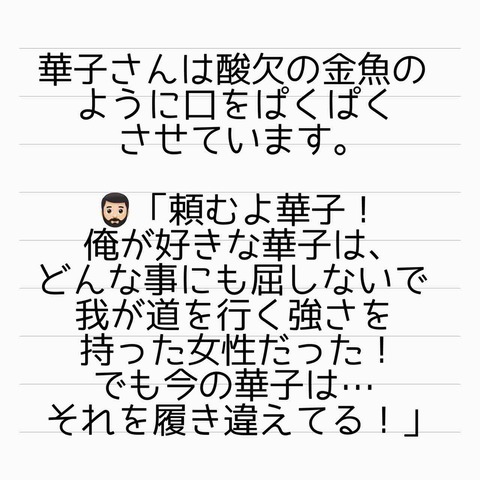 華子さんは酸欠の金魚の
ように口をぱくぱく
させています。
🧔🏻「頼むよ華子！
俺が好きな華子は、
どんな事にも屈しないで
我が道を行く強さを
持った女性だった！
でも今の華子は…
それを履き違えてる！」